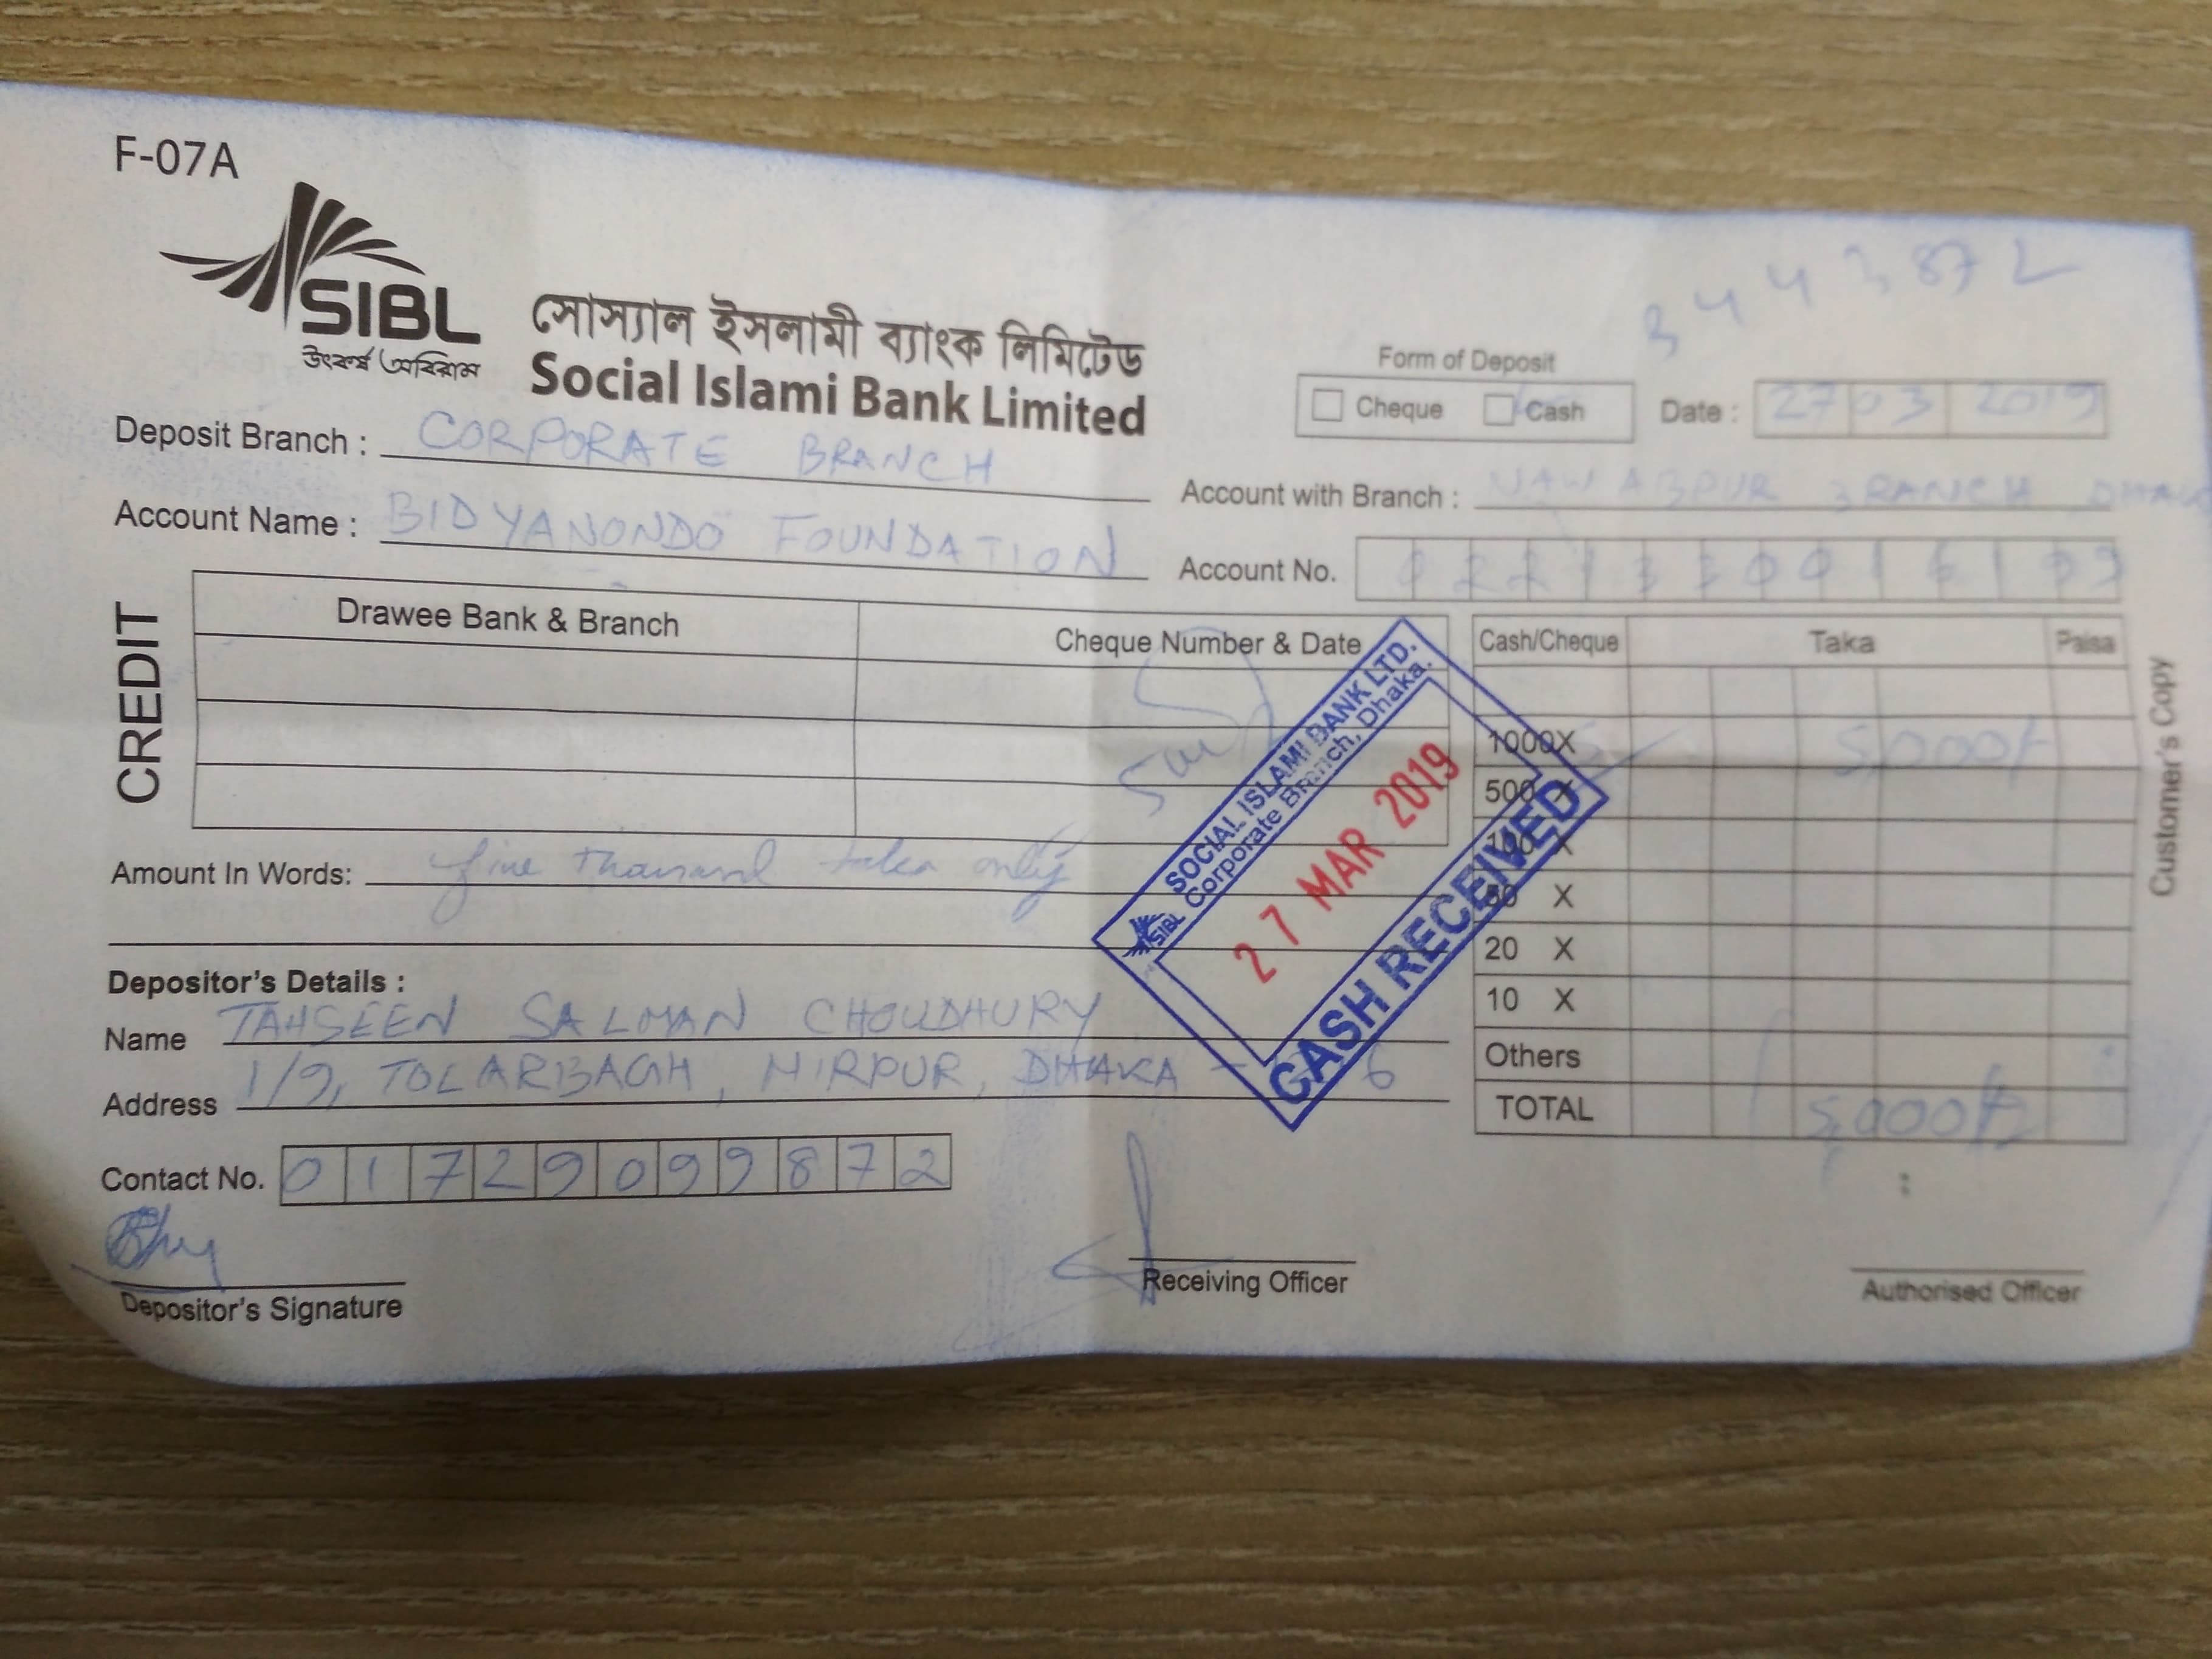 F-07A
SIBL
উৎকর্ষে অবিরাম
সোস্যাল ইসলামী ব্যাংক লিমিটেড
Social Islami Bank Limited
3443872
Form of Deposit
Cheque Cash
Date : 27 03 2019
Deposit Branch : CORPORATE BRANCH
Account with Branch : NAWABPUR BRANCH
Account Name : BIDYANONDO FOUNDATION
Account No.
CREDIT
Drawee Bank & Branch Cheque Number & Date
Cash/Cheque Taka Paisa
1000X 5,000/-
500 X
100 X
50 X
20 X
10 X
Others
TOTAL 5,000/-
Customer's Copy
SOCIAL ISLAMI BANK LTD.
Corporate Branch, Dhaka.
SIBL
27 MAR 2019
CASH RECEIVED
Amount In Words: five thousand taka only
Depositor's Details :
Name TAHSEEN SALMAN CHOUDHURY
Address 1/9, TOLARBAGH, MIRPUR, DHAKA -
Contact No. 01729099872
Depositor's Signature
Receiving Officer
Authorised Officer